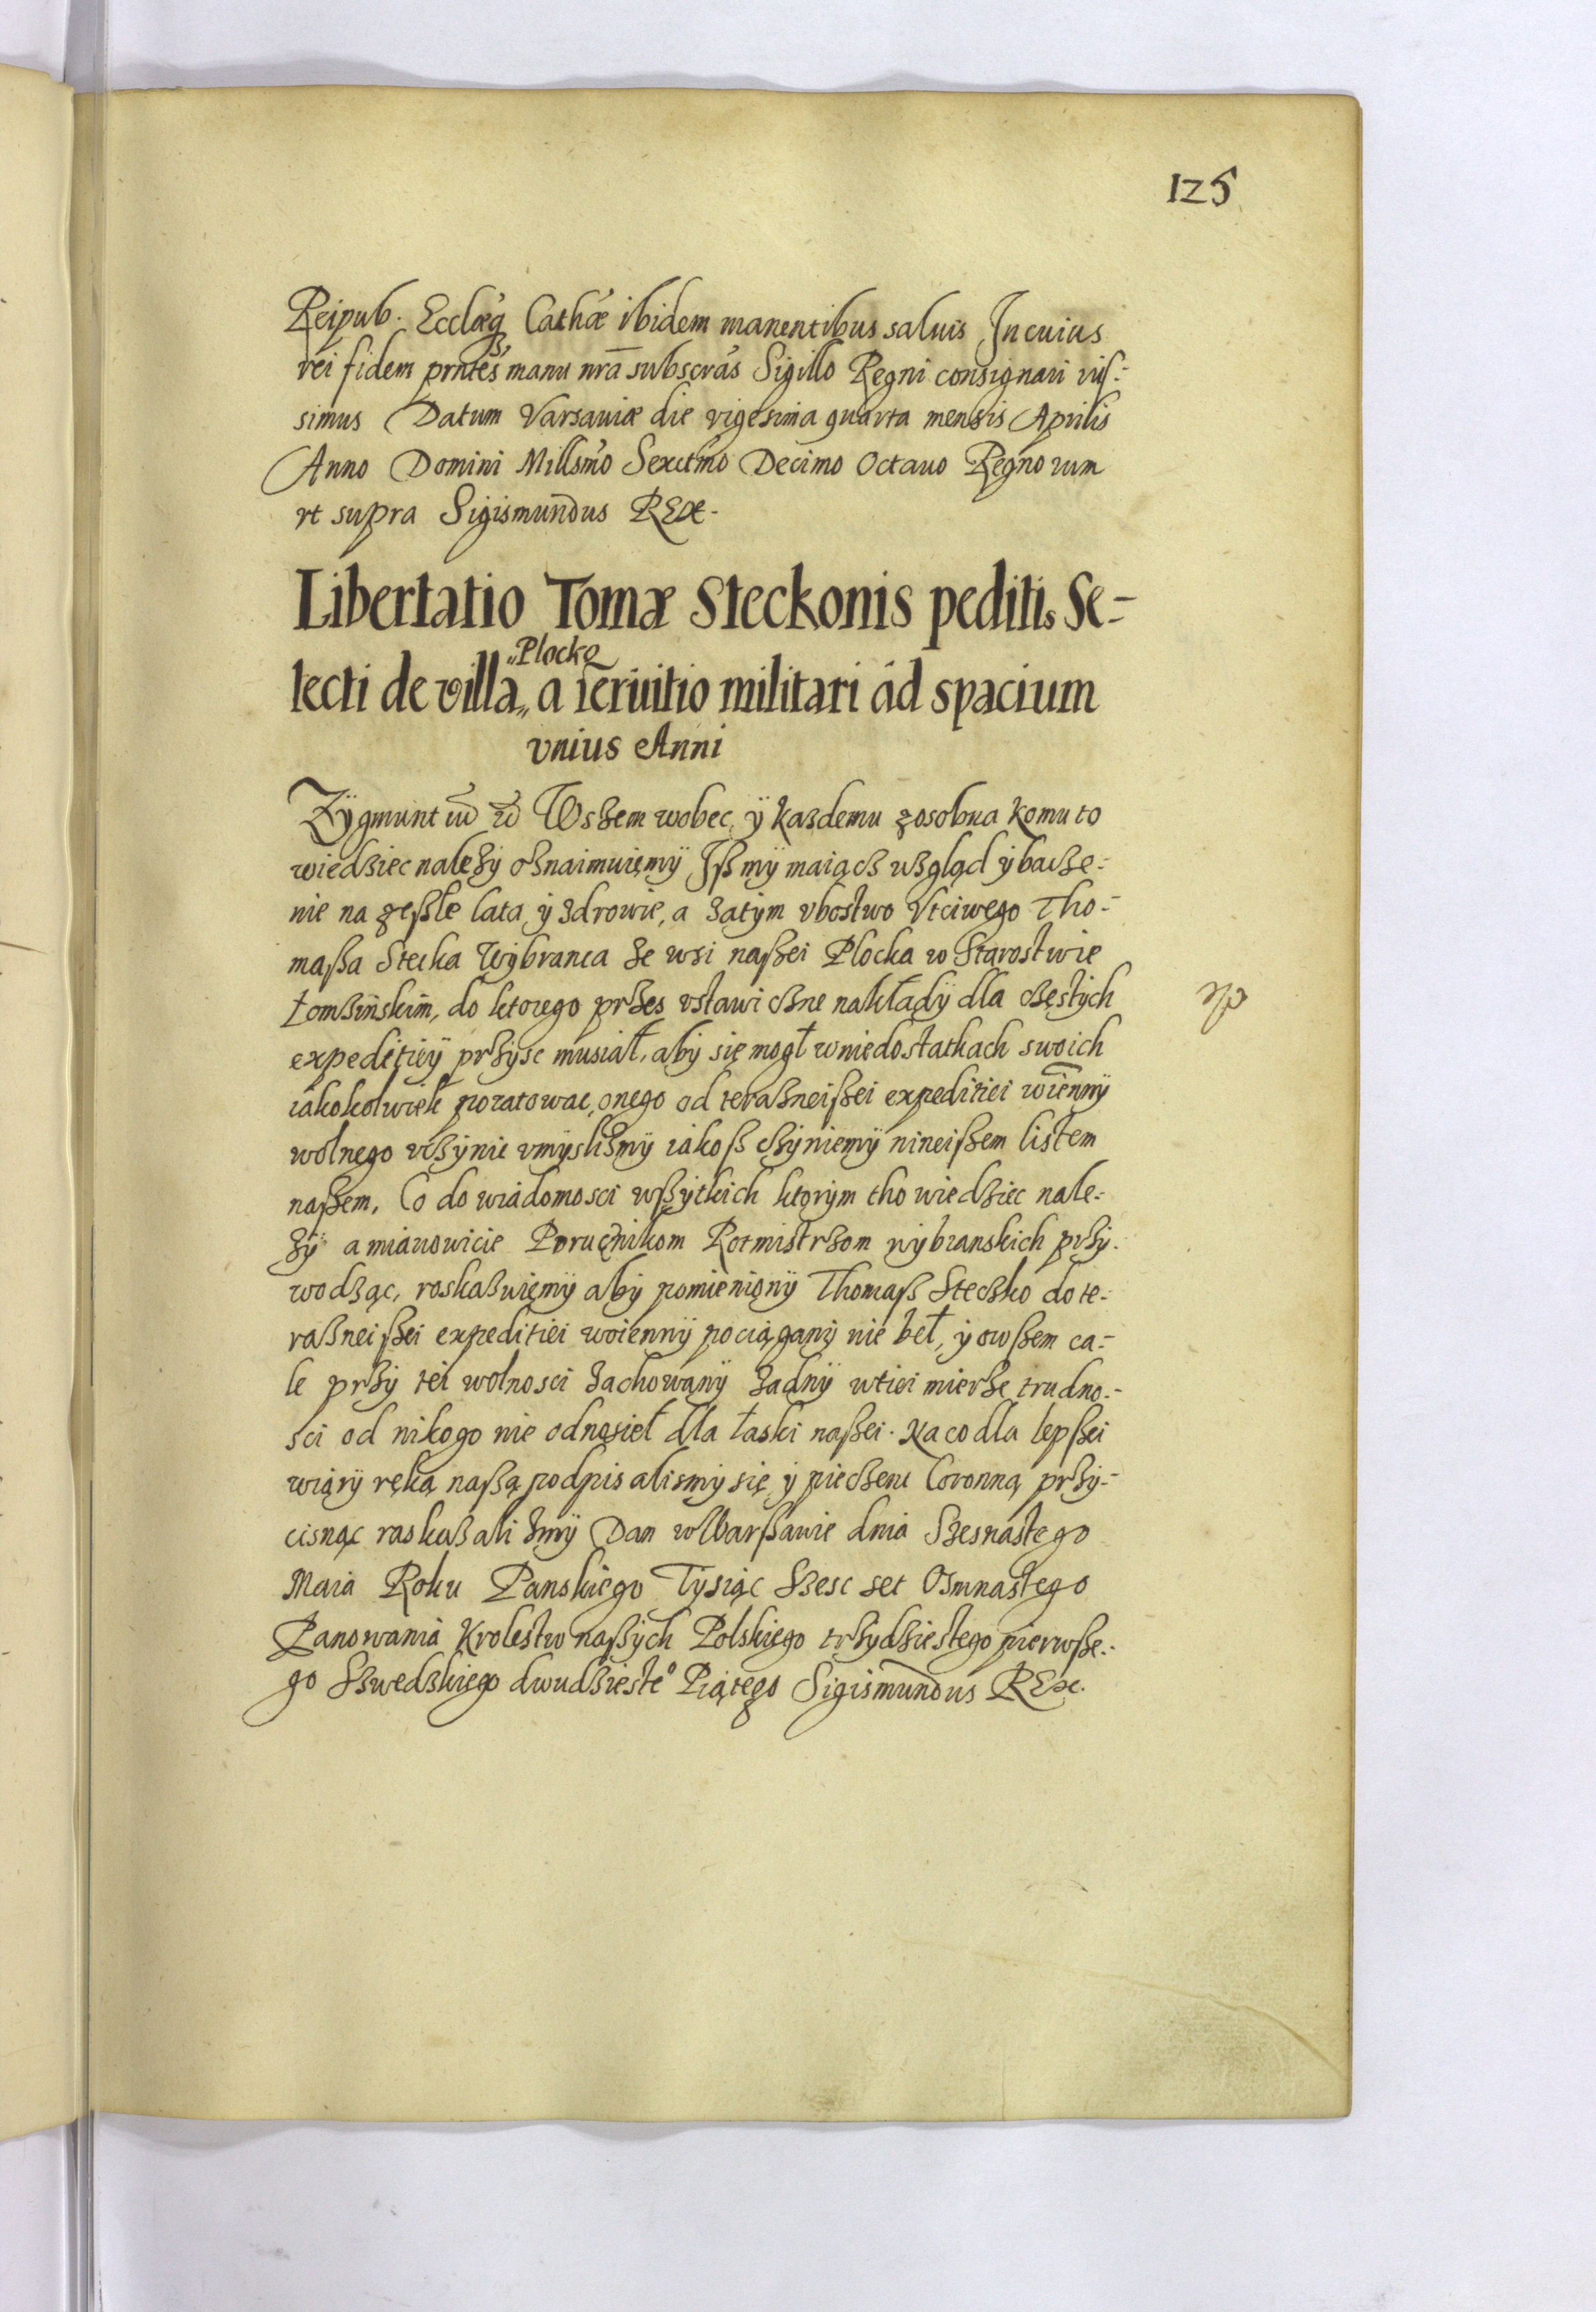 125
Reipub. Ecclæq Cathæ ibidem manentibus saluis In cuius
rei fidem prntes manu nrā subscrás Sigillo Regni consignari iuſ-
simus Datum Varsaviæ die vigesima quarta mensis Aprilis
Anno Domini Millsmo Sexctmo Decimo Octauo Regnorum
vt supra Sigismundus REX.
Libertatio Tomæ Steckonis peditis Se-
lecti de villa „Plocka„ a seruitio militari ád spacium
vnius Anni
Zÿgmunt Wszem wobec, ÿ każdemu zosobna komu to
wiedziec należÿ oznaimuięmÿ Iß mÿ maiącz wzgląd ÿ bacze-
nie na zeßłe lata, ÿ zdrowie, a zatÿm vbostwo Vtciwego Tho-
maßa Stecka Wÿbranca ze wsi naßei Plocka w Starostwie
Łomżinskim, do ktorego przes vstawiczne nakładÿ dla częstÿch
expeditiÿ przÿsc musiał, abÿ się mogł w niedostatkach swoich
iakokolwiek poratowac, onego od teraznieißei expeditiei wienÿ
wolnego vczÿnic vmÿslizmÿ iakoß czÿniemÿ nineißem listem
naßem, Co do wiadomosci wßÿtkich ktorÿm tho wiedziec nale-
żÿ a mianowicie Porucznikom Rotmistrzom wÿbranskich przÿ-
wodząc, roskazuięmÿ abÿ pomienionÿ Thomaß Steczko do te-
razneißei expeditiei woiennÿ pociąganÿ nie beł, ÿ owßem ca-
le przÿ tei wolnosci zachowanÿ żadnÿ w tiei mierze trudno-
sci od nikogo nie odnosieł dla łaski naßei. Na co dla lepßei
wiarÿ ręką naßą podpisalismÿ się, ÿ pieczeni Coronną przÿ-
cisnąc raskazalizmÿ Dan w Warßawie dnia Szesnastego
Maia Roku Panskiego Tÿsiąc Szesc set Osmnastego
Panowania Krolestw naßÿch Polskiego trzÿdziestego pierwsze-
go Szwedzkiego dwudzieste° Piątego Sigismundus REX.